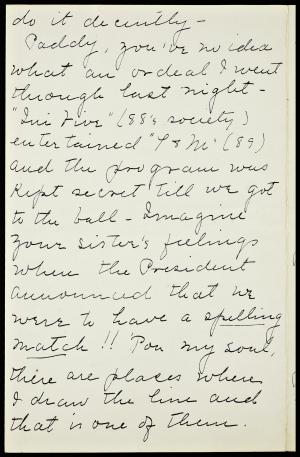 do it decently -
Paddy, you've no idea
what an ordeal I went
through last night -
"Ini Five" (88's society)
entertained "T & M" (89)
and the program was
kept secret till we got
to the ball - Imagine
your sister's feelings
when the President
announced that we
were to have a spelling
match !! 'Pon my soul,
there are places where
I draw the line and
that is one of them.